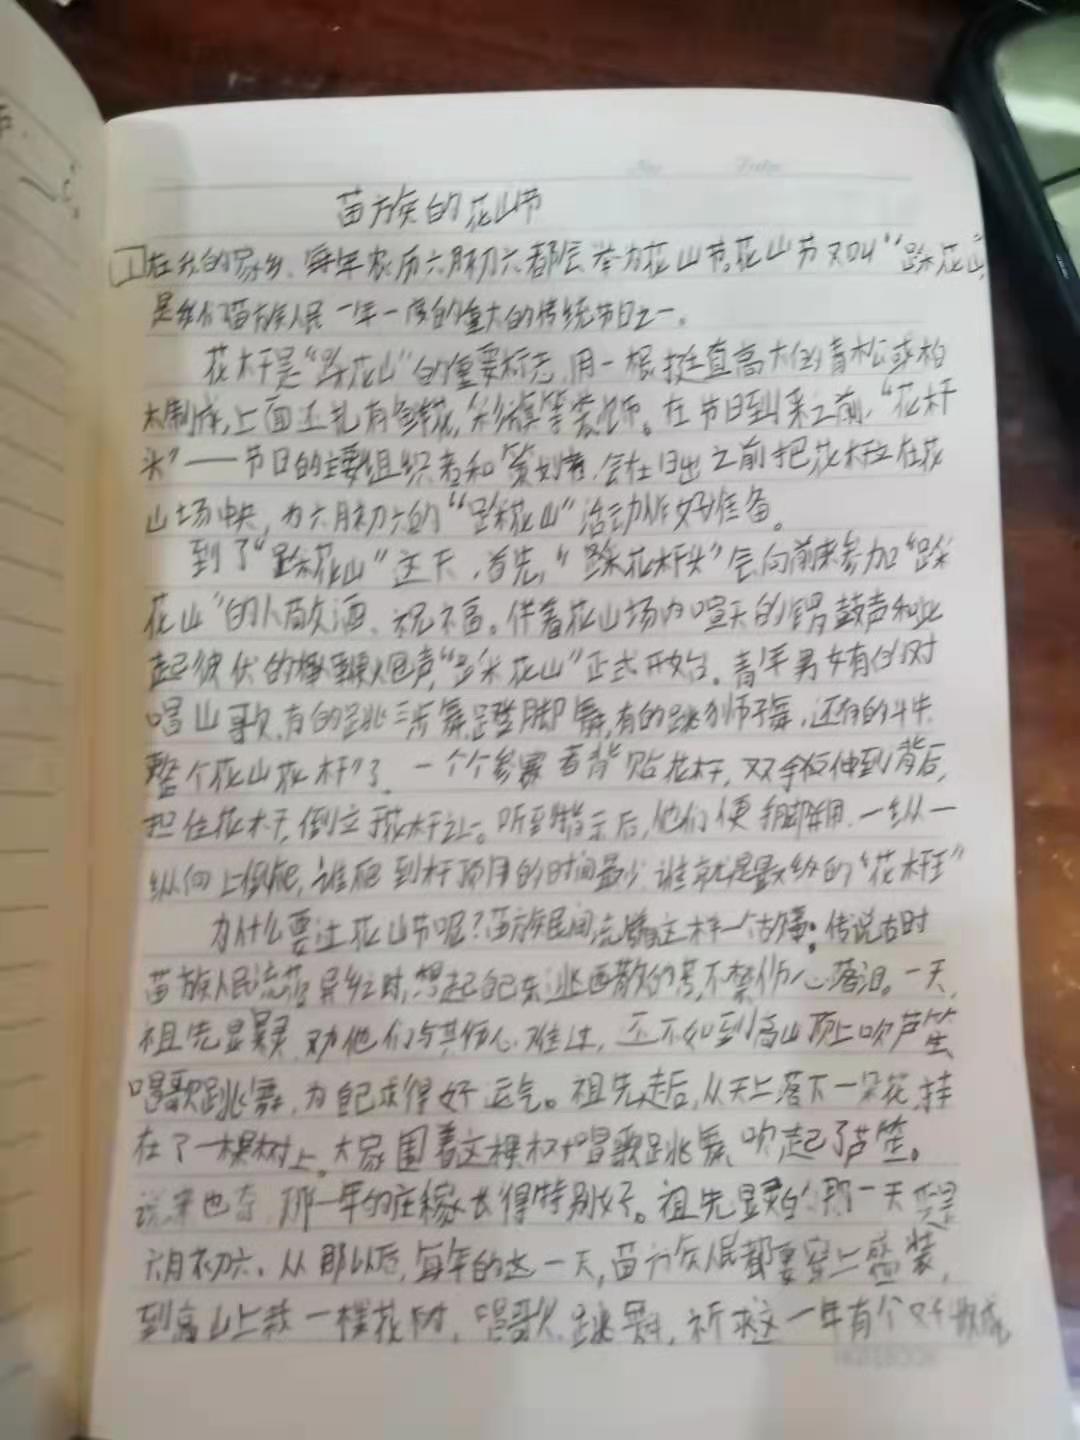 苗族的花山节
在我的家乡、每年农历六月初六都会举办花山节,花山节又叫“踩花山”
是我们苗族人民一年一度的重大的传统节日之一。
花杆是“踩花山”的重要标志,用一根挺直高大的青松或柏
木制成,上面还扎有鲜花,彩旗等装饰。在节日到来之前,“花杆
头”——节日的主要组织者和策划者,会在日出之前把花杆立在花
山场中央,为六月初六的“踩花山”活动作好准备。
到了“踩花山”这天,首先,“踩花杆头”会向前来参加“踩
花山”的人敬酒、祝福。伴着花山场内喧天的锣鼓声和此
起彼伏的鞭炮声,“踩花山”正式开始。青年男女有的对
唱山歌,有的跳三步舞,蹬脚舞,有的跳狮子舞,还有的斗牛
整个花山花杆了,一个个参赛者背贴花杆,双手极伸到背后,
抱住花杆,倒立于花杆之上。听到指示后,他们便手脚并用,一纵一
纵向上倒爬,谁爬到杆顶用的时间最少,谁就是最终的“花杆王”
为什么要过花山节呢?苗族民间流传这样一个故事。传说古时
苗族人民流落异乡时,想起自己东逃西散的苦,不禁伤心落泪。一天,
祖先显灵,劝他们与其伤心难过,还不如到高山顶上吹芦笙、
唱歌跳舞,为自己求得好运气。祖先走后,从天上落下一朵花,挂
在了一棵树上。大家围着这棵树唱歌跳舞、吹起了芦笙。
说来也奇,那一年的庄稼长得特别好。祖先显灵的那一天是
六月初六、从那以后,每年的这一天,苗族人民都要穿上盛装,
到高山上栽一棵花树,唱歌、跳舞,祈求这一年有个好收成